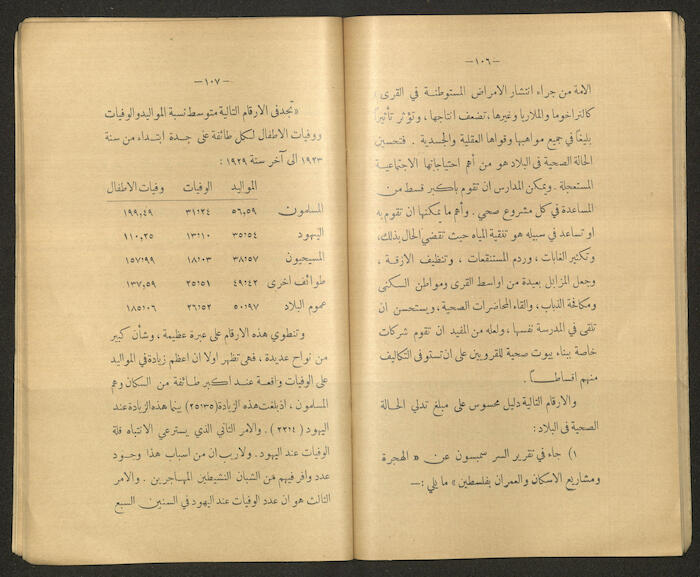 — ١٠٦ —
الامة من جراء انتشار الامراض المستوطنة في القرى ،
كالتراخوما والملاريا وغيرها، تضعف انتاجها، وتؤثر تأثيراً
بليغاً في جميع مواهبها وقواها العقلية والجسدية . فتحسين
الحالة الصحية في البلاد هو من أهم احتياجاتها الاجتماعية
المستعجلة . ويمكن المدارس ان تقوم باكبر قسط من
المساعدة في كل مشروع صحي . وأهم ما يمكنها ان تقوم به
او تساعد في سبيله هو تنقية المياه حيث تقضي الحال بذلك،
وتكثير الغابات ، وردم المستنقعات ، وتنظيف الازقة ،
وجعل المزابل بعيدة من اواسط القرى ومواطن السكنى
ومكافحة الذباب ، والقاء المحاضرات الصحية ، ويستحسن ان
تلقى في المدرسة نفسها ، ولعله من المفيد ان تقوم شركات
خاصة ببناء بيوت صحية للقرويين على ان تستوفى التكاليف
منهم اقساطاً .
والارقام التالية دليل محسوس على مبلغ تدلي الحالة
الصحية في البلاد :
١) جاء في تقرير السر سمبسون عن « الهجرة
ومشاريع الاسكان والعمران بفلسطين » ما يلي :—
— ١٠٧ —
« تجد في الارقام التالية متوسط نسبة المواليد والوفيات
ووفيات الاطفال لكل طائفة على حدة ابتداء من سنة
١٩٢٣ الى آخر سنة ١٩٢٩ :
المواليد الوفيات وفيات الاطفال
المسلمون ٥٦,٥٩ ٣١٬٢٤ ١٩٩,٤٩
اليهود ٣٥٬٥٤ ١٣٬١٠ ١١٠,٢٥
المسيحيون ٣٨٬٥٧ ١٨٬٠٣ ١٥٧٬٩٩
طوائف اخرى ٤٩٬٤٢ ٢٥٬٥١ ١٣٧,٥٩
عموم البلاد ٥٠٬٩٧ ٢٦٬٥٢ ١٨٥٬٠٦
وتنطوي هذه الارقام على عبرة عظيمة ، وشأن كبير
من نواح عديدة ، فهي تظهر اولا ان اعظم زيادة في المواليد
على الوفيات واقعة عند اكبر طائفة من السكان وهم
المسلمون ، اذ بلغت هذه الزيادة (٢٥٬٣٥) بينما هذه الزيادة عند
اليهود (٢٢٬٤) . والامر الثاني الذي يسترعي الانتباه قلة
الوفيات عند اليهود . ولا ريب ان من اسباب هذا وجود
عدد وافر فيهم من الشبان النشيطين المهاجرين . والامر
الثالث هو ان عدد الوفيات عند اليهود في السنين السبع